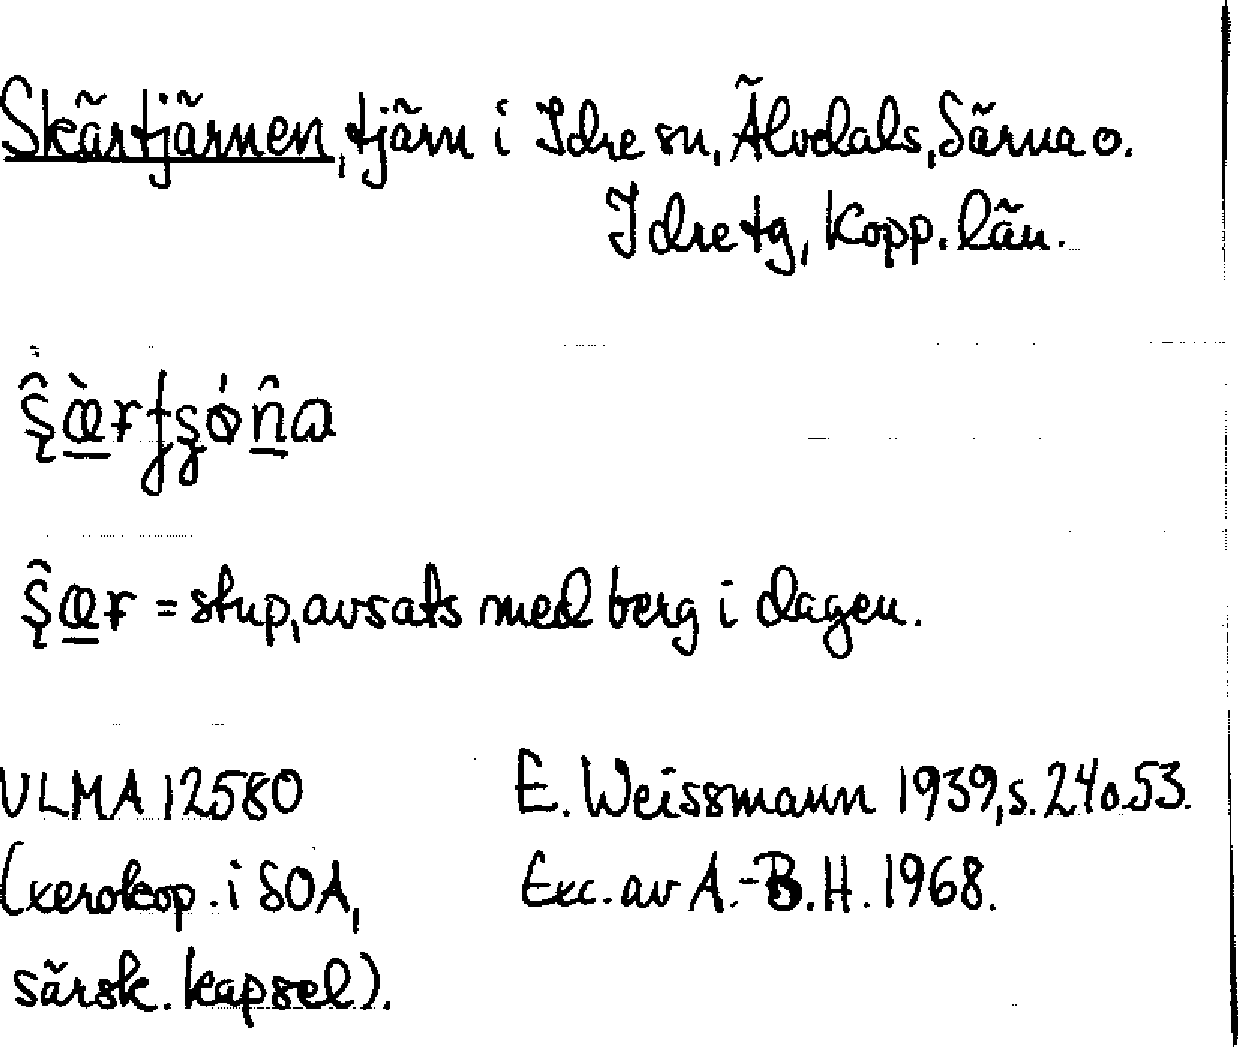 Skärtjärnen, tjärn i Idre sn, Älvdals, Särna o.
Idre tg, Kopp. län.
= stup, avsats med berg i dagen.
ULMA 12580
E. Weissmann 1939, s. 24 o. 53.
(xerokop. i SOA,
Exc. av A.-B. H. 1968.
särsk. kapsel).